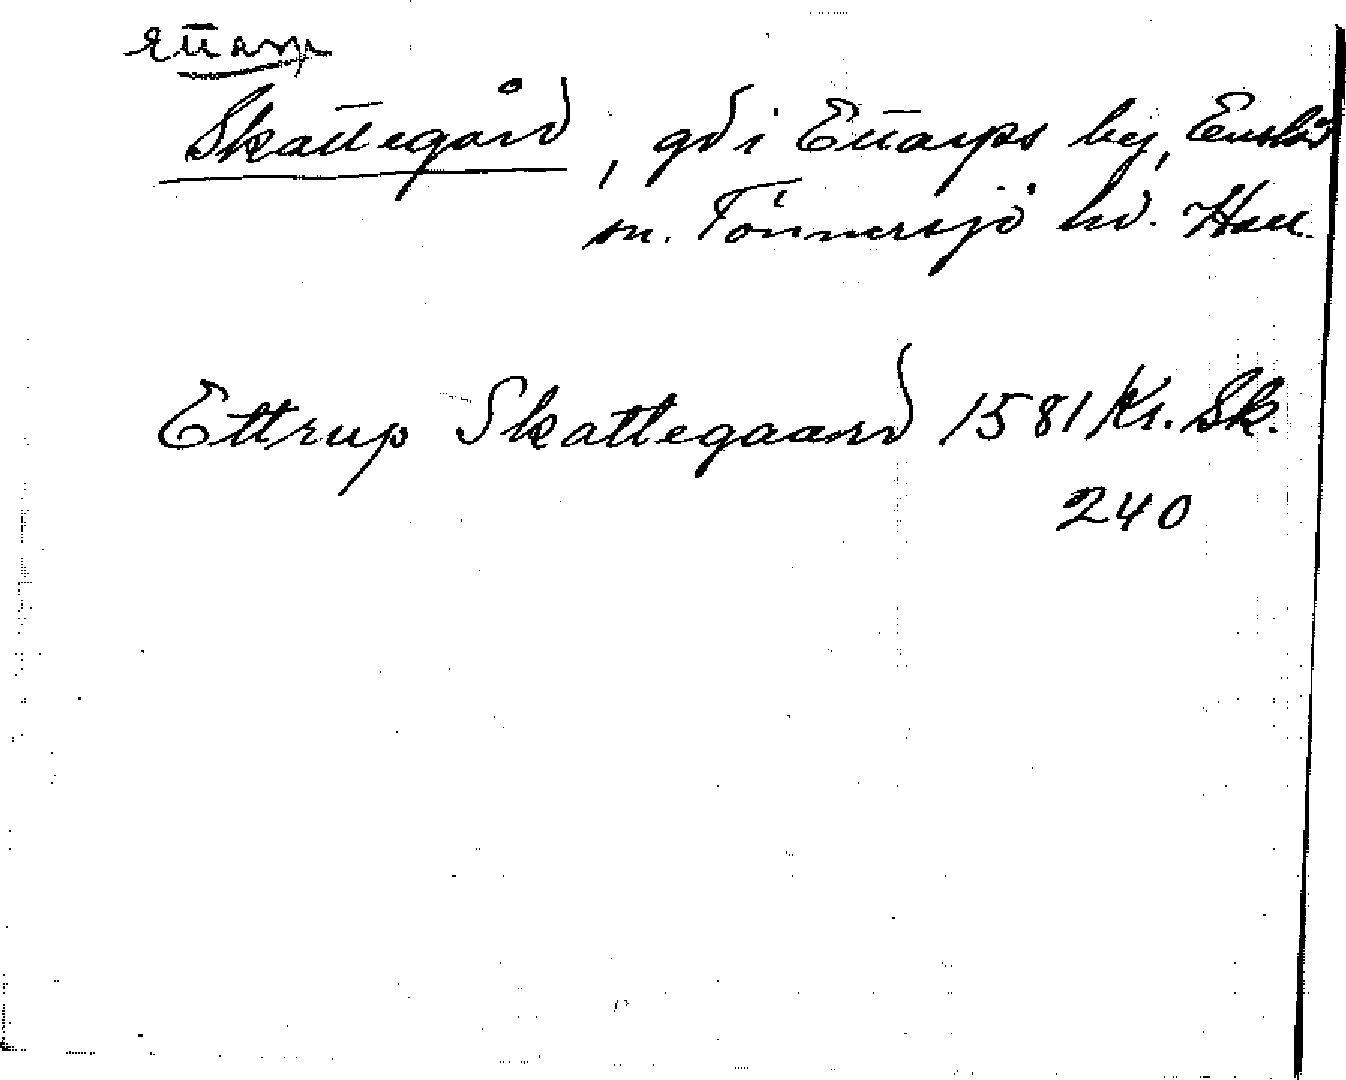 Ettarp
Skattegård, gd i Ettarps by, Enslöv
sn. Tönnersjö hd. Hall.
Ettrup Skattegaard 1581 Kr. Sk.
240